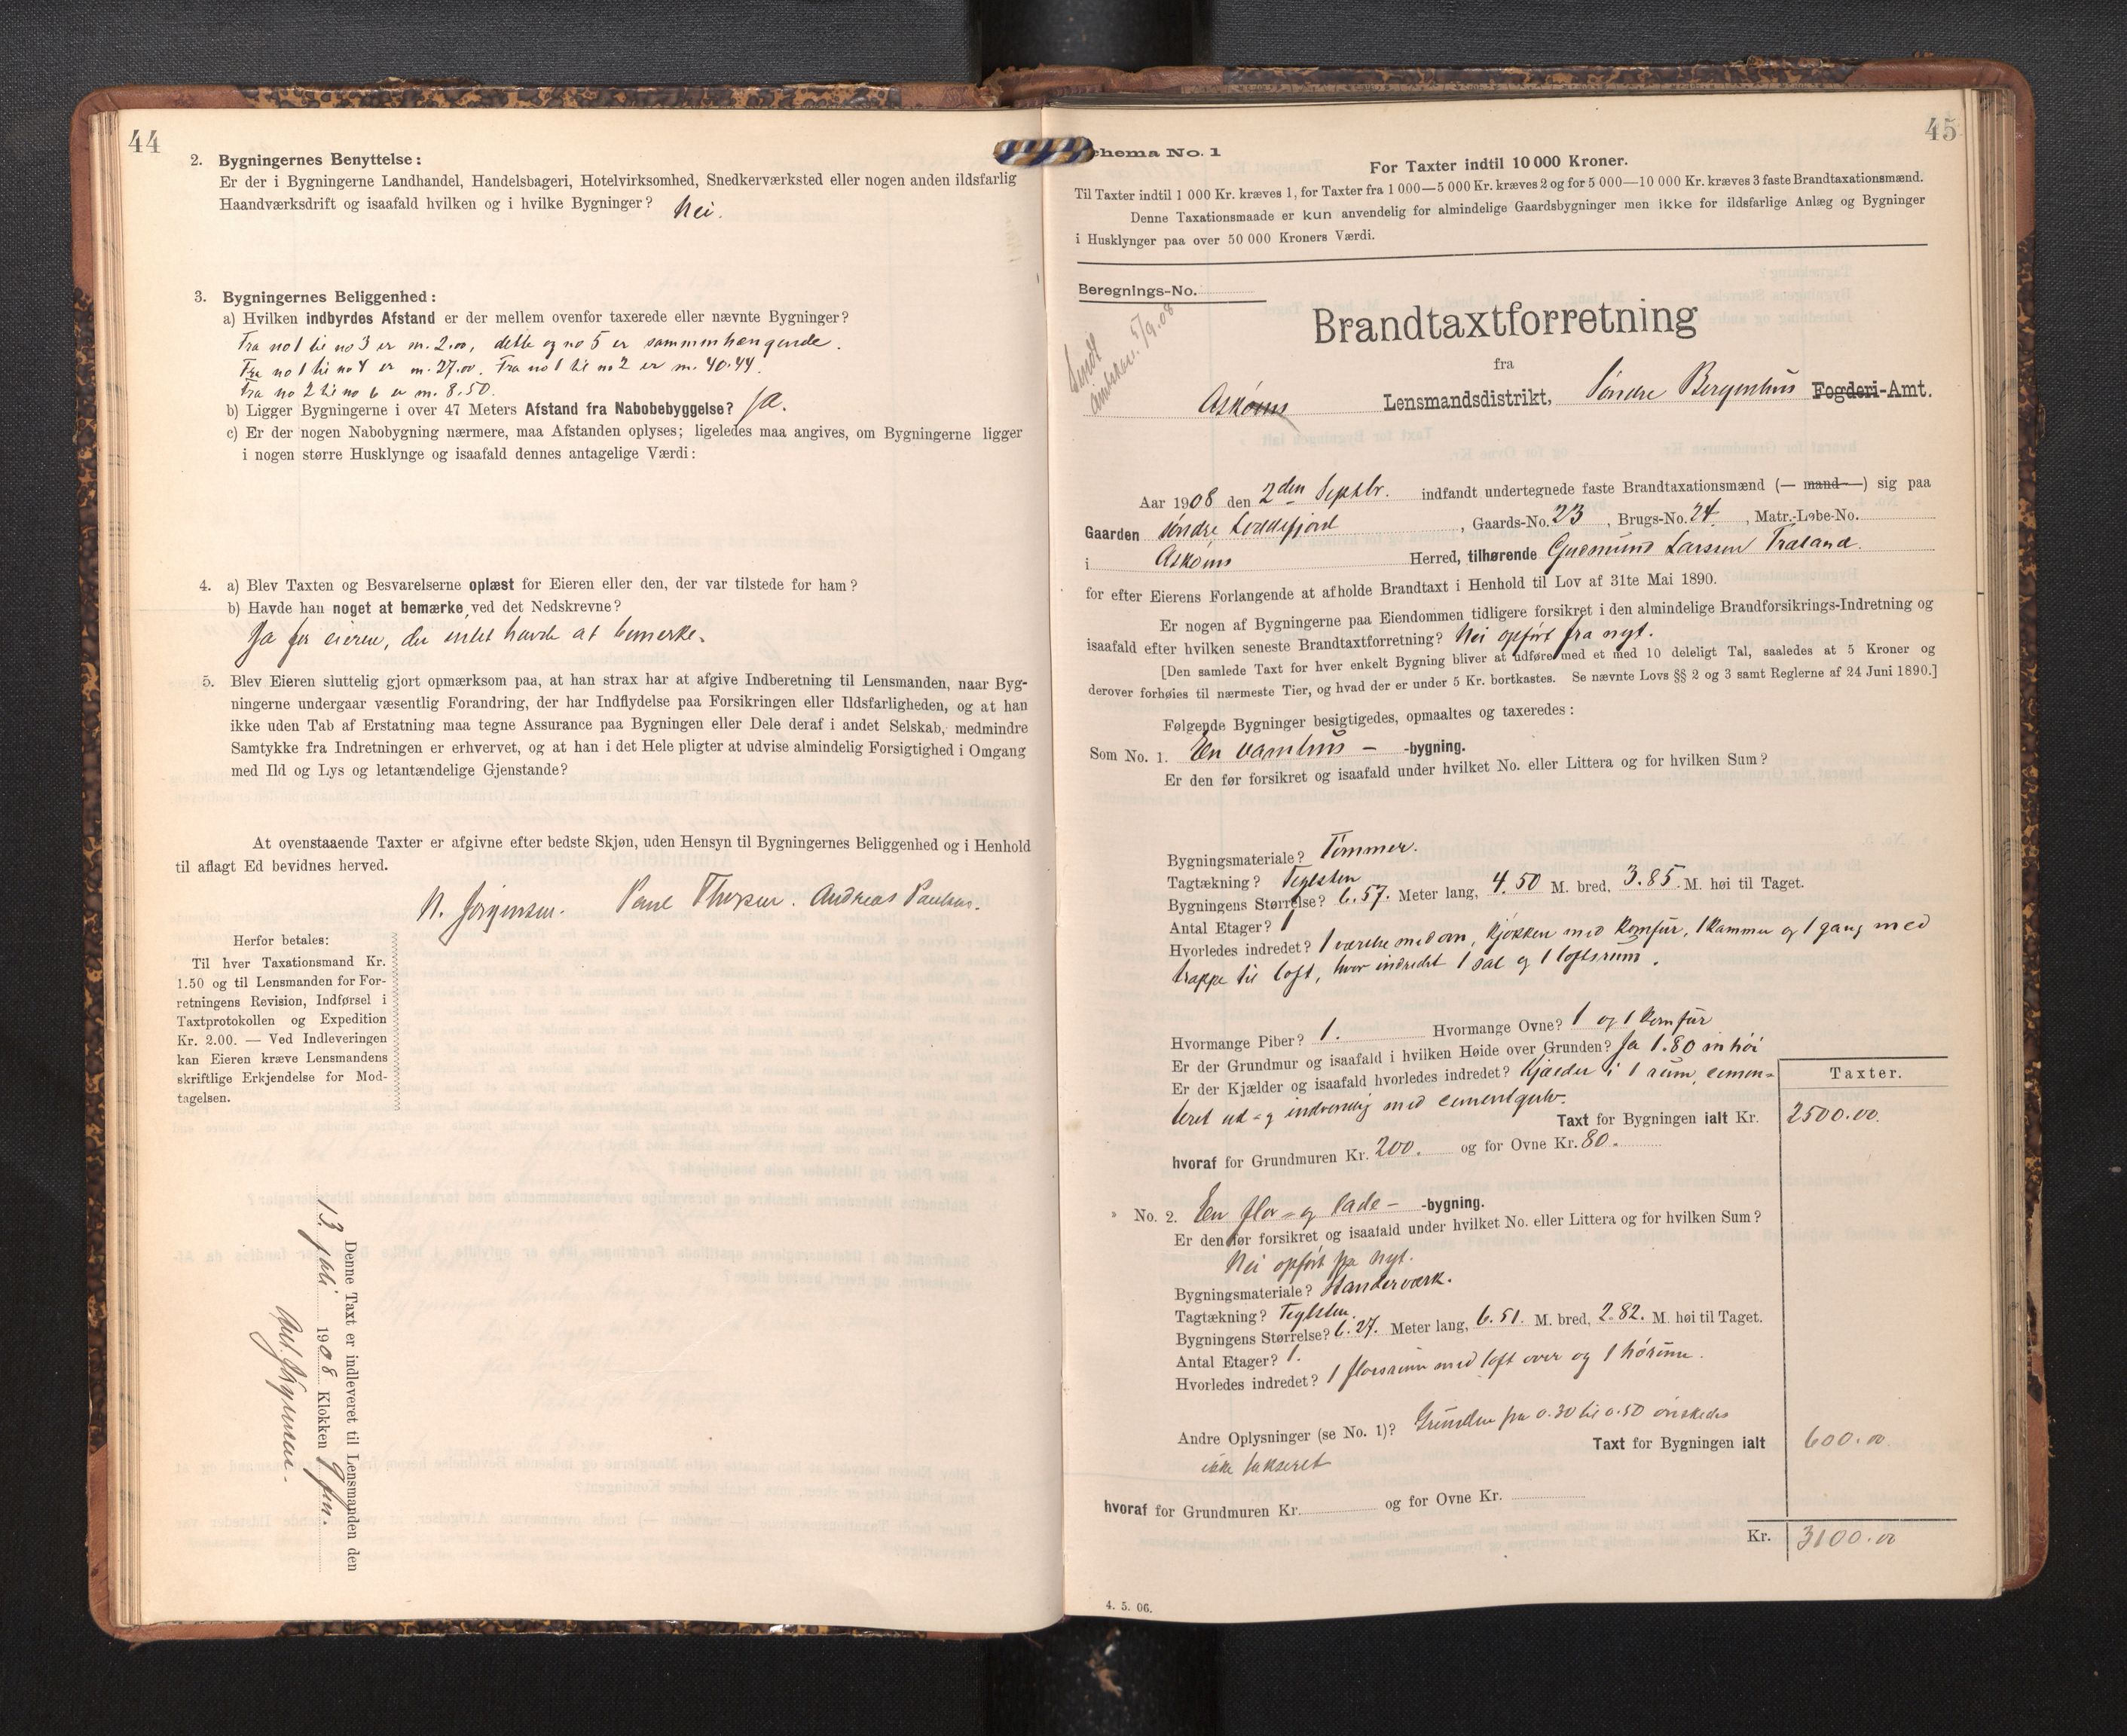 44
2. Bygningernes Benyttelse:
Er der i Bygningerne Landhandel, Handelsbageri, Hotelvirksomhed, Snedkerværksted eller nogen anden ildsfarlig
Haandværksdrift og isaafald hvilken og i hvilke Bygninger? Nei.
3. Bygningernes Beliggenhed:
a) Hvilken indbyrdes Afstand er der mellem ovenfor taxerede eller nævnte Bygninger?
Fra no 1 til no 3 er m. 2.00, dette og no 5 er sammenhængende.
Fra no 1 til no 4 er m. 27.00. Fra no 1 til no 2 er m. 40.44.
Fra no 2 til no 6 er m. 8.50.
b) Ligger Bygningerne i over 47 Meters Afstand fra Nabobebyggelse? Ja.
c) Er der nogen Nabobygning nærmere, maa Afstanden oplyses; ligeledes maa angives, om Bygningerne ligger
i nogen større Husklynge og isaafald dennes antagelige Værdi:
4. a) Blev Taxten og Besvarelserne oplæst for Eieren eller den, der var tilstede for ham?
b) Havde han noget at bemærke ved det Nedskrevne?
Ja for eieren, der intet havde at bemerke.
5. Blev Eieren sluttelig gjort opmærksom paa, at han strax har at afgive Indberetning til Lensmanden, naar Byg-
ningerne undergaar væsentlig Forandring, der har Indflydelse paa Forsikringen eller Ildsfarligheden, og at han
ikke uden Tab af Erstatning maa tegne Assurance paa Bygningen eller Dele deraf i andet Selskab, medmindre
Samtykke fra Indretningen er erhvervet, og at han i det Hele pligter at udvise almindelig Forsigtighed i Omgang
med Ild og Lys og letantændelige Gjenstande?
At ovenstaaende Taxter er afgivne efter bedste Skjøn, uden Hensyn til Bygningernes Beliggenhed og i Henhold
til aflagt Ed bevidnes herved.
N. Jörgensen. Paul Thorsen. Andreas Paulsen.
Herfor betales:
Til hver Taxationsmand Kr.
1.50 og til Lensmanden for For-
retningens Revision, Indførsel i
Taxtprotokollen og Expedition
Kr. 2.00. — Ved Indleveringen
kan Eieren kræve Lensmandens
skriftlige Erkjendelse for Mod-
tagelsen.
Denne Taxt er indleveret til Lensmanden den
13. juli 1908 Klokken 9 fm.
45
chema No. 1
For Taxter indtil 10 000 Kroner.
Til Taxter indtil 1 000 Kr. kræves 1, for Taxter fra 1 000—5 000 Kr. kræves 2 og for 5 000—10 000 Kr. kræves 3 faste Brandtaxationsmænd.
Denne Taxationsmaade er kun anvendelig for almindelige Gaardsbygninger men ikke for ildsfarlige Anlæg og Bygninger
i Husklynger paa over 50 000 Kroners Værdi.
Beregnings-No.
Sendt
5/9.08
Brandtaxtforretning
fra
Askøens Lensmandsdistrikt, Søndre Bergenhus Fogderi-Amt.
Aar 1908 den 2den Septbr. indfandt undertegnede faste Brandtaxationsmænd (— mand —) sig paa
Gaarden søndre Loddefjord, Gaards-No. 23, Brugs-No. 24., Matr.-Løbe-No.
i Askøens Herred, tilhørende Gudmund Larsen Træland.
for efter Eierens Forlangende at afholde Brandtaxt i Henhold til Lov af 31te Mai 1890.
Er nogen af Bygningerne paa Eiendommen tidligere forsikret i den almindelige Brandforsikrings-Indretning og
isaafald efter hvilken seneste Brandtaxtforretning? Nei opført fra nyt.
[Den samlede Taxt for hver enkelt Bygning bliver at udføre med et med 10 deleligt Tal, saaledes at 5 Kroner og
derover forhøies til nærmeste Tier, og hvad der er under 5 Kr. bortkastes. Se nævnte Lovs §§ 2 og 3 samt Reglerne af 24 Juni 1890.]
Følgende Bygninger besigtigedes, opmaaltes og taxeredes:
Som No. 1. En vaanhus – -bygning.
Er den før forsikret og isaafald under hvilket No. eller Littera og for hvilken Sum?
Bygningsmateriale? Tømmer.
Tagtækning? Teglsten
Bygningens Størrelse? 6.57. Meter lang, 4.50 M. bred, 3.85. M. høi til Taget.
Antal Etager? 1
Hvorledes indredet? 1 værelse med ovn, kjøkken med komfur, 1 kammer og 1 gang med
trappe til loft, hvor indredet 1 sal og 1 loftsrum.
Hvormange Piber? 1. Hvormange Ovne? 1 og 1 komfur
Er der Grundmur og isaafald i hvilken Høide over Grunden? Ja 1.80 m høi
Er der Kjælder og isaafald hvorledes indredet? Kjælder i 1 rum, cemen-
teret ud- og indvendig med cementgulv.
Taxter.
Taxt for Bygningen ialt Kr. 2500.00.
hvoraf for Grundmuren Kr. 200. og for Ovne Kr. 80.
No. 2. En flor- og lade – -bygning.
Er den før forsikret og isaafald under hvilket No. eller Littera og for hvilken Sum?
Nei opført fra nyt.
Bygningsmateriale? Standerværk.
Tagtækning? Teglsten.
Bygningens Størrelse? 6.27. Meter lang, 6.51. M. bred, 2.82. M. høi til Taget.
Antal Etager? 1.
Hvorledes indredet? 1 florsrum med loft over og 1 hørum.
Andre Oplysninger (se No. 1)? Grunden fra 0.30 til 0.50 ønskedes
ikke takseret
Taxt for Bygningen ialt 600.00
hvoraf for Grundmuren Kr. og for Ovne Kr.
Kr. 3100.00
4. 5. 06.